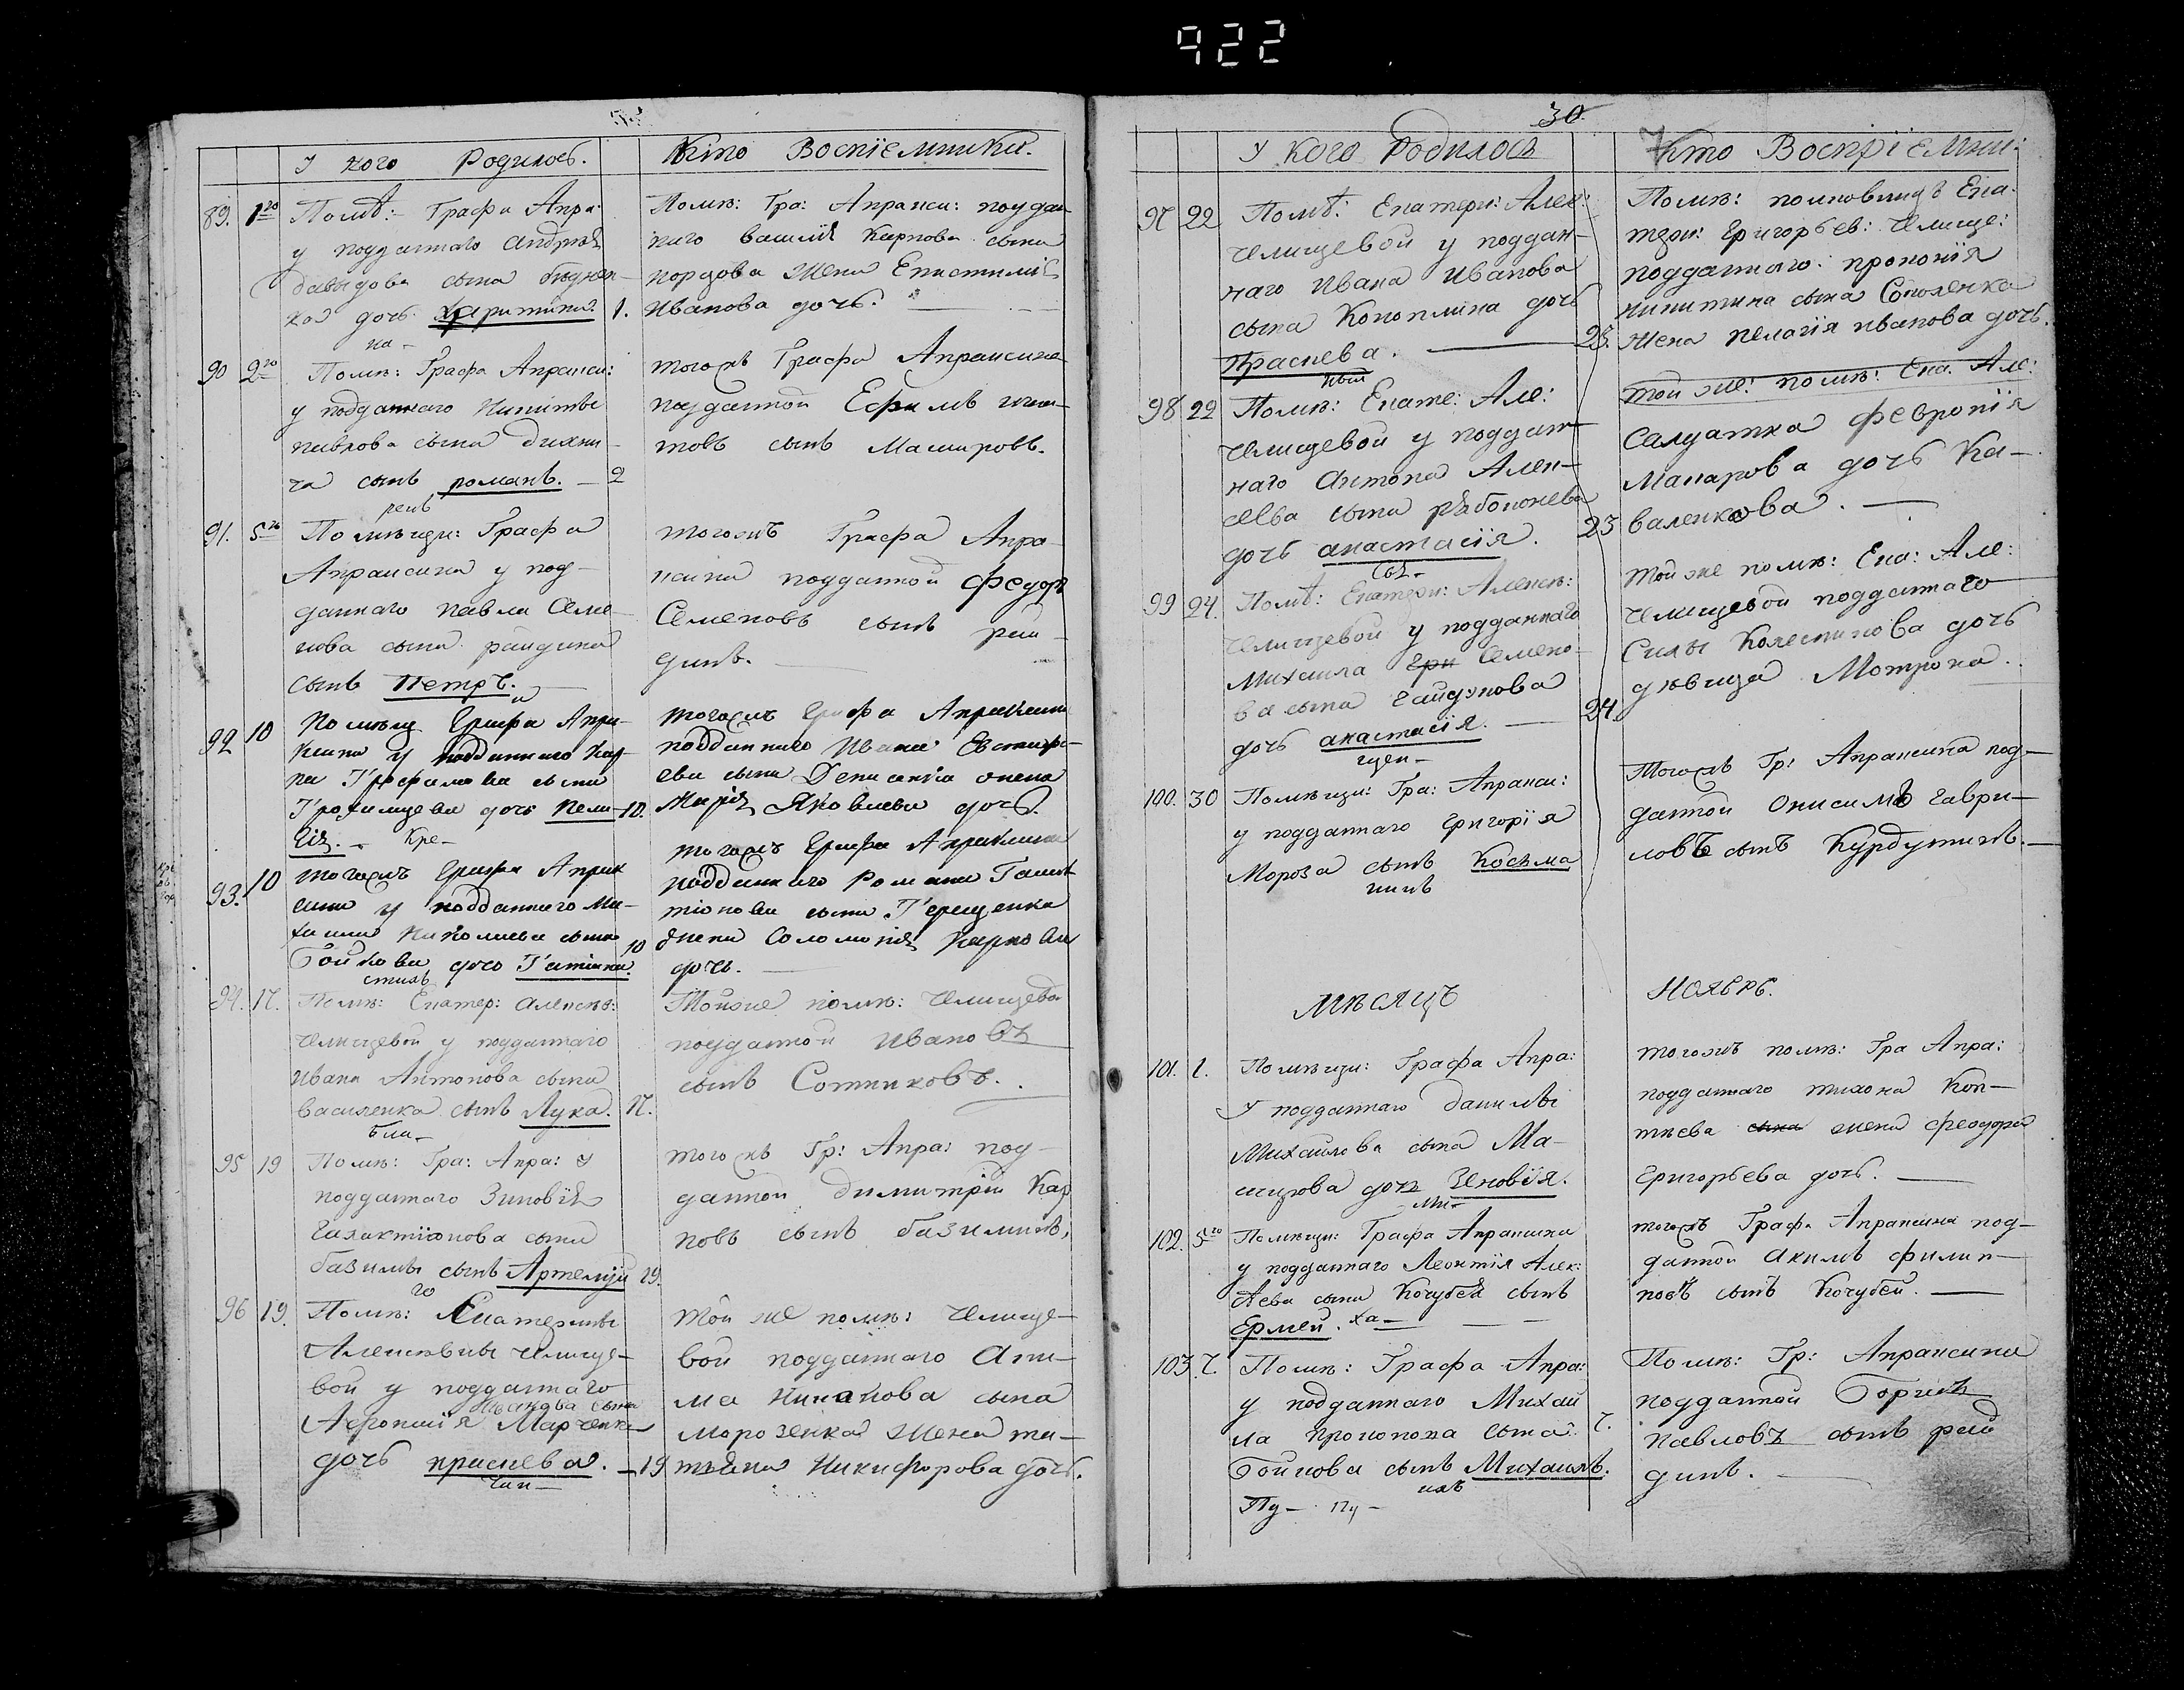 922
У кого Родилось.
Кто Воспріемники.
89. 1го Помѣ: Графа Апра:
у подданнаго андрея
давыдова сына
кой дочь харитина. 1.
на-
Помѣ: Гра: Апракси: поддан
наго василія Карпова сына
жена Епистимія
Иванова дочь.
90 2го Помѣ: Графа Апракси:
у подданнаго Никиты
павлова сына
ча сынъ романъ. — 2
тогожъ Графа Апраксина
подданной Ефимъ
товъ сынъ Машировъ.
91. 5го Помѣщи: Графа
Апраксина у под-
даннаго павла Семе-
нова сына райдина
сынъ петръ.
тогожъ Графа Апра
ксина подданной федоръ
Семеновъ сынъ рай-
динъ.
92 10 Помѣщ Графа Апра-
ксина у подданнаго Кар-
па Трофимова сына
Трофимцева дочь пела- 10.
гія. - Кре-
тогожъ Графа Апраксина
подданнаго Ивана Евстафі-
ева сына Денисенка жена
Марія Яковлева дочь.
93. 10 тогожъ Графа Апрак
сина у подданнаго Ми-
хаила Николаева сына
Бойкова дочь Татіана. 10
тогожъ Графа Апраксина
подданнаго Романа Галак
тіонова сына Терещенка
жена Соломонія Карпова
дочь.
94. 17. Помѣ: Екатер: алексѣе:
Челищевой у подданнаго
Ивана Антонова сына
василенка сынъ Лука. 17.
Тойже помѣ: Челищева
подданной Ивановъ
сынъ Сотниковъ.
95 19 Помѣ: Гра: Апра: у
подданнаго Зиновія
Галактіонова сына
базимы сынъ Артемій 19.
тогожъ Гр: Апра: под-
данной димитрій Кар
повъ сынъ базиминъ.
96 19. Помѣ: Екатерины
Алексѣвны Челище-
вой у подданнаго
ивакова сына
Афонасія Марченка
дочь праскева. — 19
той же помѣ: Челище-
вой подданнаго Аки-
ма Никанова сына
морозенка жена та-
тіана Никифорова дочь.
30
У кого Родилось
Кто Воспріемни:
97 22 Помѣ: Екатери: Алек:
Челищевой у поддан-
наго Ивана Иванова
сына Коноплина дочь
Праскева. 23.
Помѣ: полковницѣ Ека:
Григорьев: Челище:
подданнаго прокопія
никитина сына Соколенка
жена пелагія иванова дочь.
98 22 Помѣ: Екате: Але:
Челищевой у поддан-
наго Антона Алек-
сѣева сына рябоконева
дочь анастасія. 23
той же: помѣ: Ека: Але:
Салдатка февронія
Макарова дочь Ка-
валенкова.
99 24. Помѣ: Екатери: Алексѣ:
Челищевой у подданнаго
Михаила Гри Семено-
ва сына Гайдукова
дочь анастасія. 24.
той же помѣ: Ека: Але:
Челищевой подданнаго
Силы Колесникова дочь
дѣвица Мотрона.
100. 30 Помѣщи: Гра: Апракси:
у подданнаго Григорія
Мороза сынъ Косьма
Тогожъ Гр: Апраксина под-
данной Онисимъ Гаври-
ловъ сынъ Курдуминъ.
Мѣсяцъ
Ноябрь.
101. 1. Помѣщи: Графа Апра:
У подданнаго данилы
Михайлова сына Ма-
шурова дочь Зеновія.
тогожъ помѣ: Гра Апра:
подданнаго тихона Коп-
тѣева сына жена феодора
Григорьева дочь.
102. 5го Помѣщи: Графа Апраксина
у подданнаго Леонтія Алек:
сѣева сына Кочубея сынъ
Ермей. ха-
тогожъ Графа Апраксина под-
данной Акимъ филип-
повъ сынъ Кочубей.
103. 7. Помѣ: Графа Апра:
у подданнаго Михаи
ла Прокопова сына 7.
Бойкова сынъ Михаилъ.
Пу- пу-
Помѣ: Гр: Апраксина
подданной Борисъ
павловъ сынъ рай
динъ.